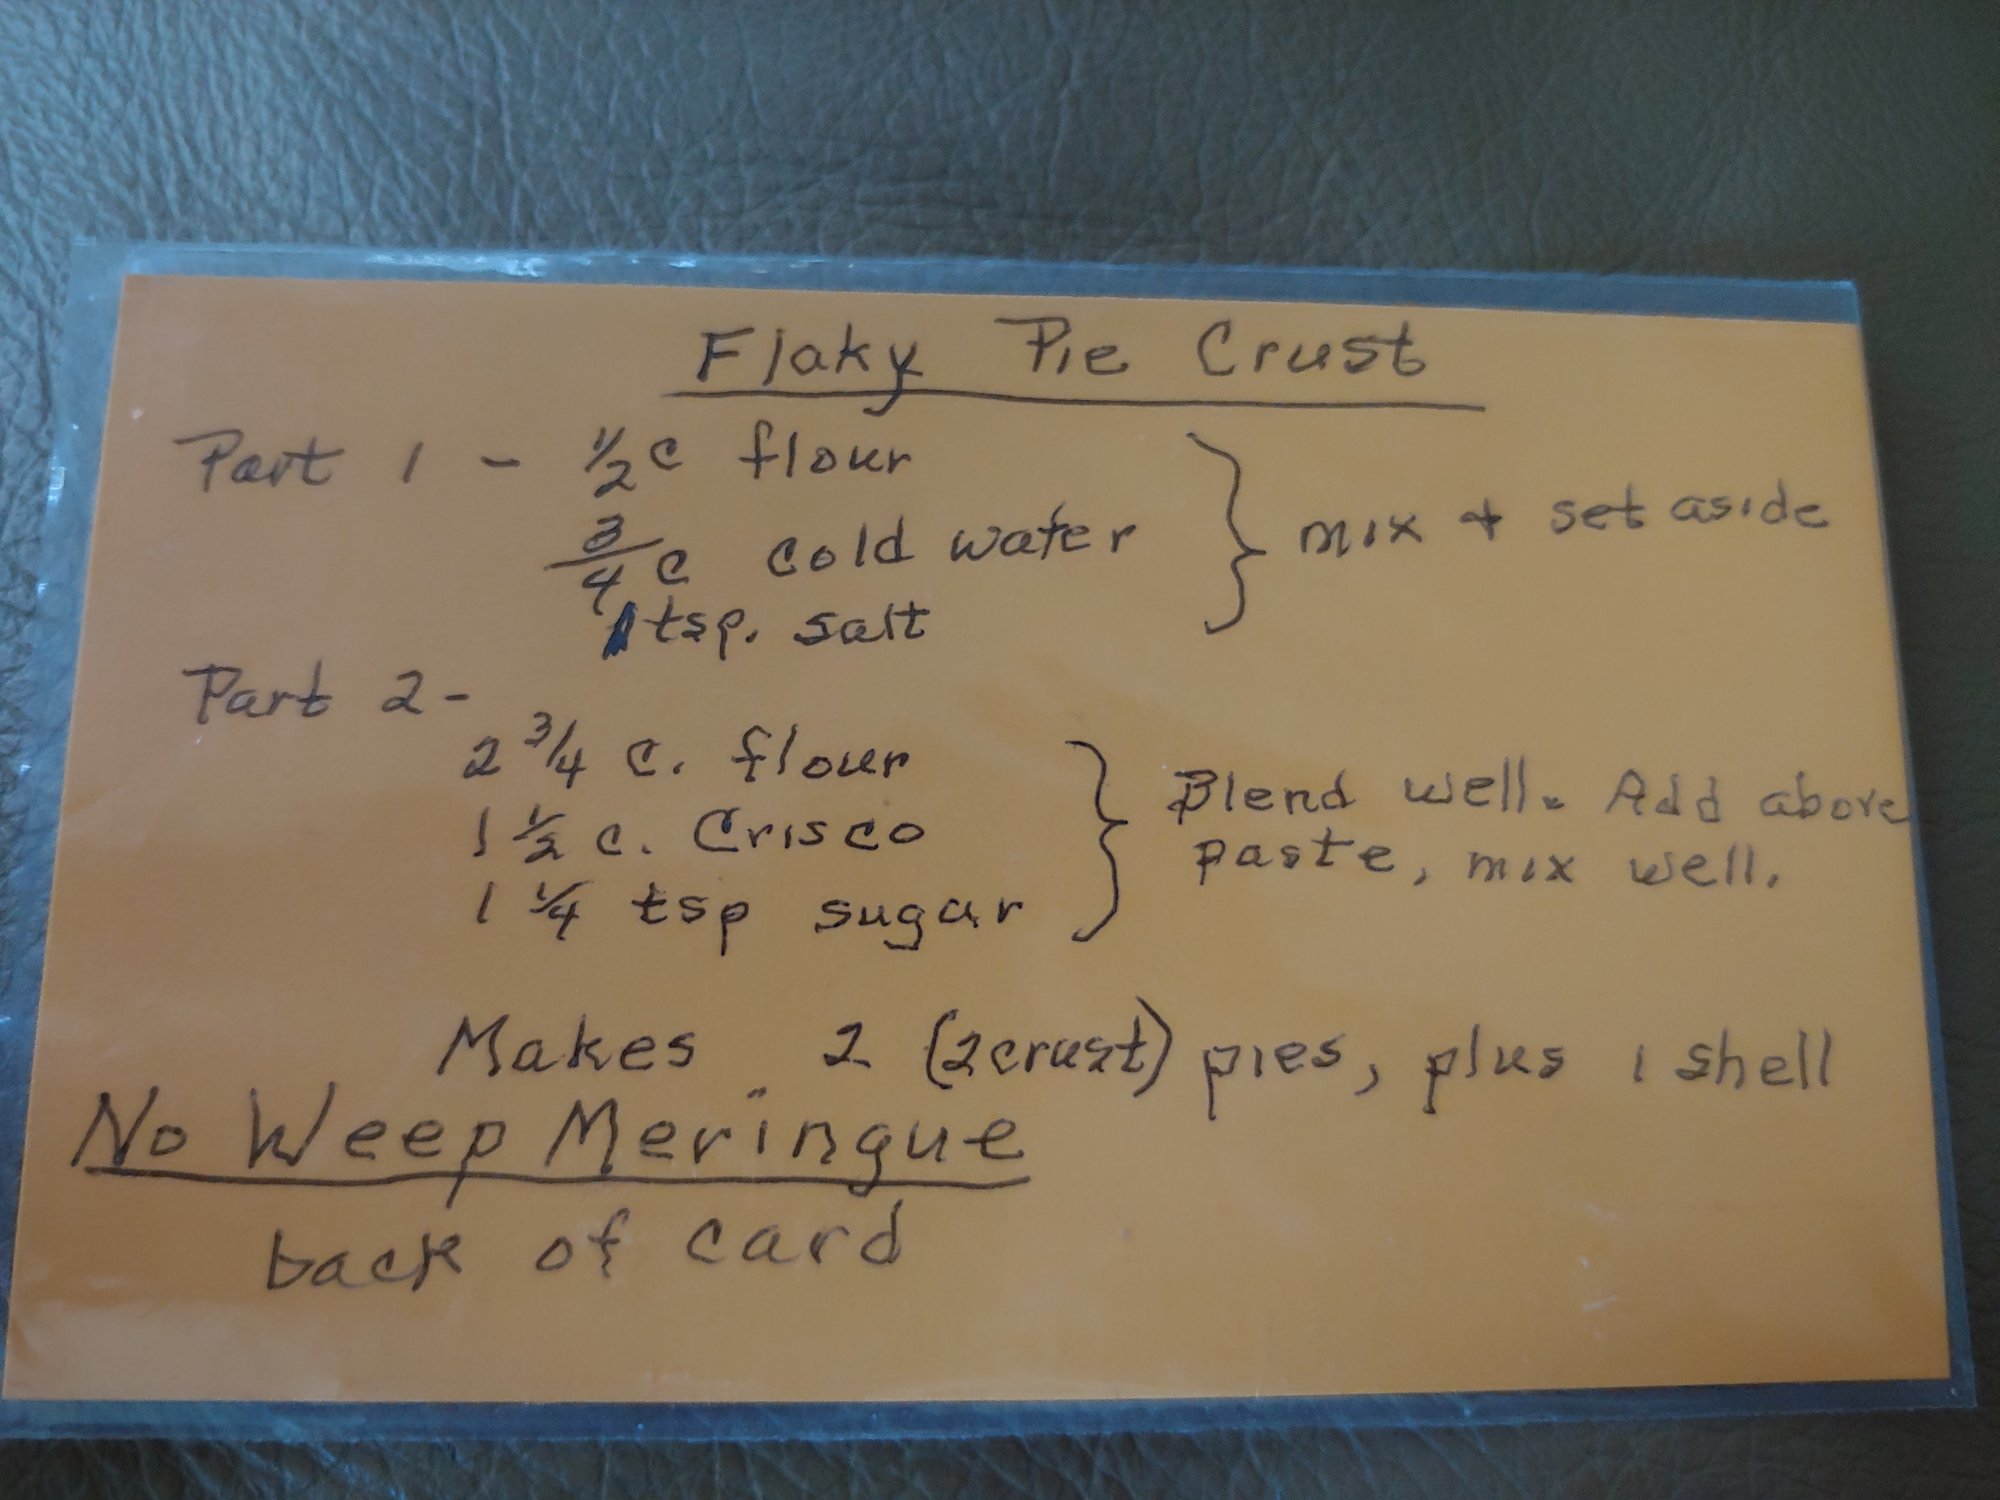 Flaky Pie Crust
Part 1 - 1/2 c flour
3/4 c cold water
1 tsp. salt
mix + set aside
Part 2 -
2 3/4 c. flour
1 1/2 c. Crisco
1 1/4 tsp sugar
Blend well. Add above
paste, mix well.
Makes 2 (2crust) pies, plus 1 shell
No Weep Meringue
back of card